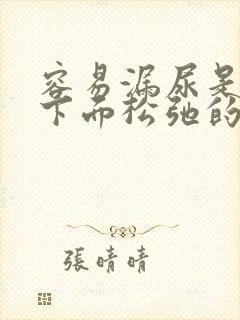 容易漏尿是
下而松弛的
張晴晴